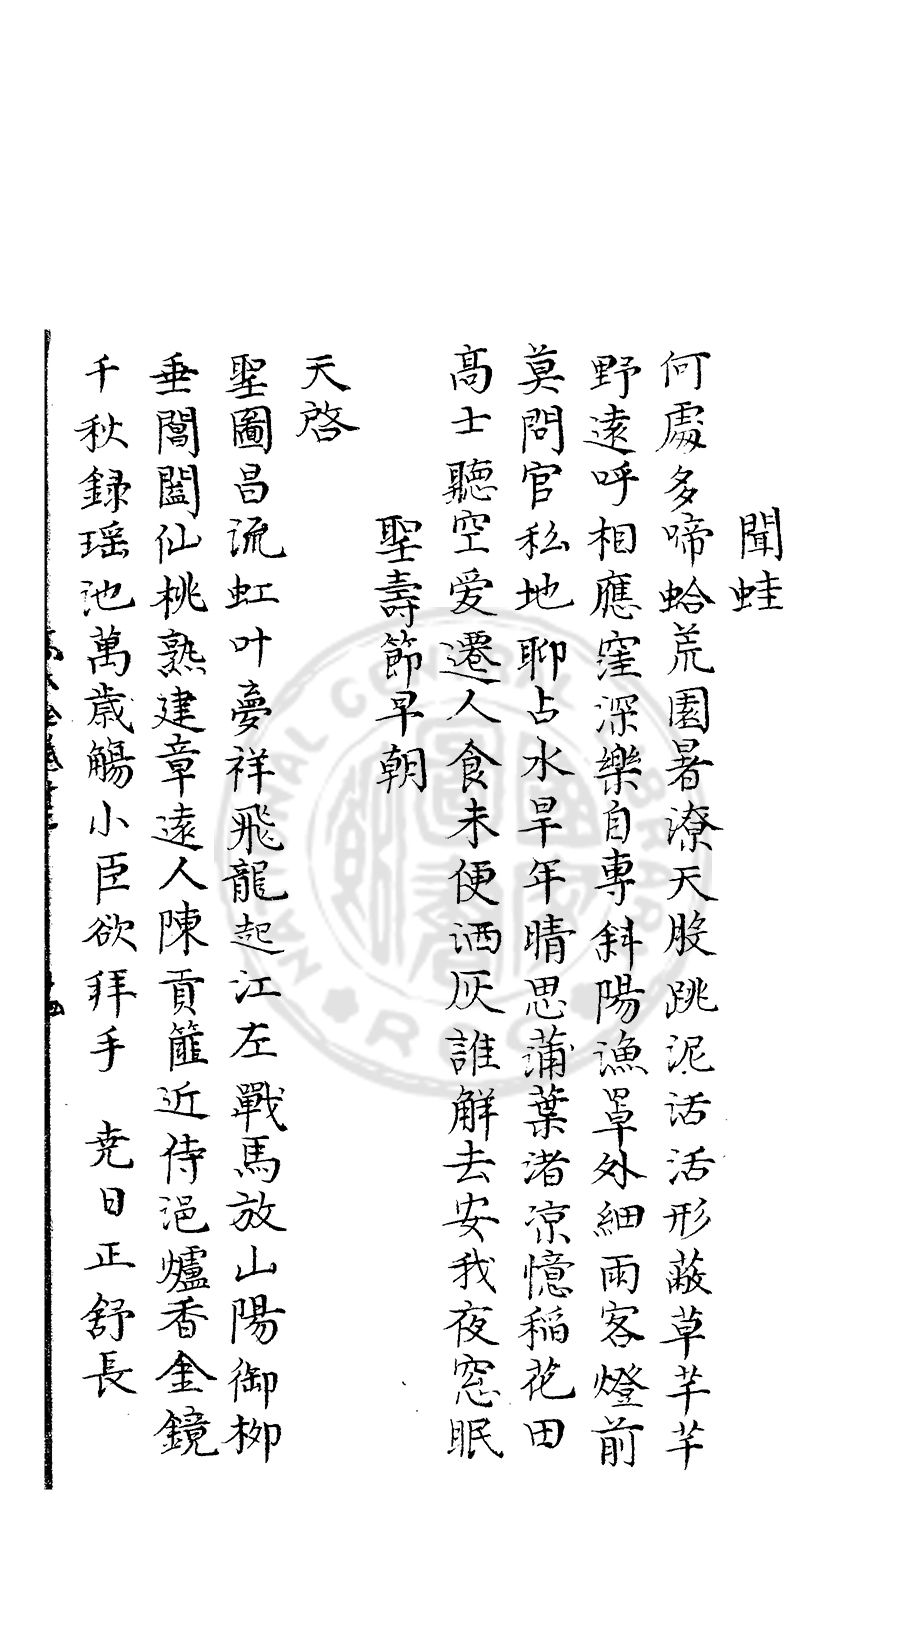 聞蛙
何處多啼蛤荒園暑潦天股跳泥活活形蔽草芊芊
野遠呼相應窪深樂自專斜陽漁罩外細雨客燈前
莫問官私地聊占水旱年晴思蒲葉渚凉憶稻花田
高士聽空爱遷人食未便洒灰誰解去安我夜窓眠
聖壽節早朝
天啓
聖圖昌流虹叶夢祥飛龍起江左戰馬放山陽御柳
垂閶闔仙桃熟建章遠人陳貢篚近侍浥爐香金鏡
千秋録瑶池萬歳觴小臣欲拜手 尭日正舒長
NATIONAL CENTRAL LIBRARY
ROC